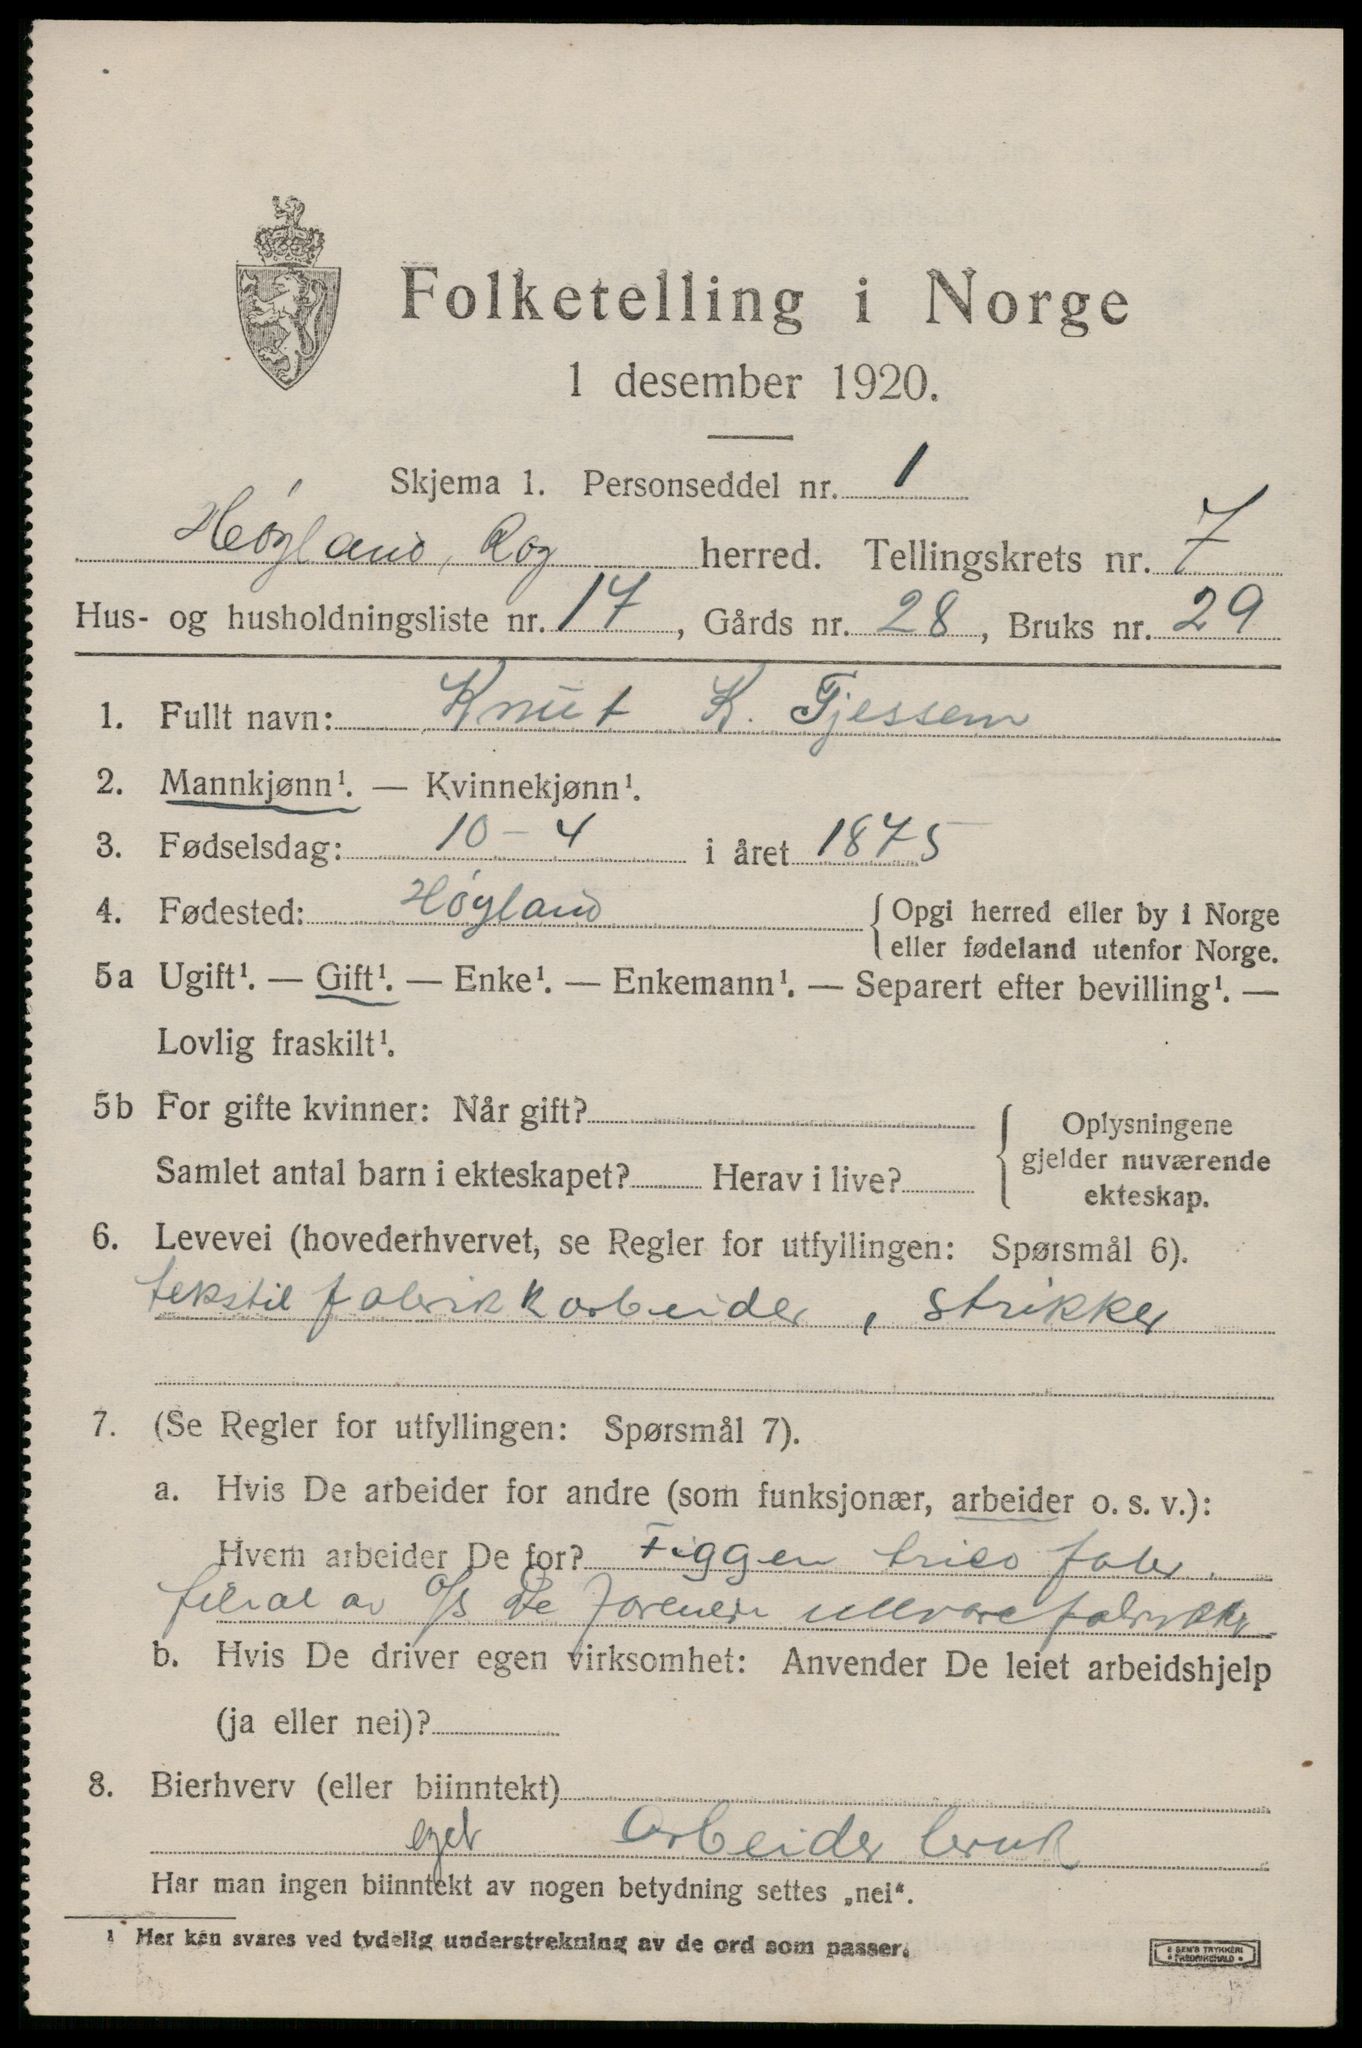 Folketelling i Norge
1 desember 1920.
Skjema 1. Personseddel nr. 1
Høyland, Rog herred. Tellingskrets nr. 7
Hus- og husholdningsliste nr. 17, Gårds nr. 28, Bruks nr. 29
1. Fullt navn: Knut K. Gjessem
2. Mannkjønn¹. — Kvinnekjønn¹.
3. Fødselsdag: 10-4 i året 1875
4. Fødested: Høyland {Opgi herred eller by i Norge
eller fødeland utenfor Norge.
5a Ugift¹. — Gift¹. — Enke¹. — Enkemann¹. — Separert efter bevilling¹. —
Lovlig fraskilt¹.
5b For gifte kvinner: Når gift?
Samlet antal barn i ekteskapet? Herav i live?
Oplysningene
gjelder nuværende
ekteskap.
6. Levevei (hovederhvervet, se Regler for utfyllingen: Spørsmål 6).
tekstil fabrikkarbeider, strikker
7. (Se Regler for utfyllingen: Spørsmål 7).
a. Hvis De arbeider for andre (som funksjonær, arbeider o. s. v.):
Hvem arbeider De for? Figgen trico fabr.
filial av A/S De forenede ullvarefabrikker
b. Hvis De driver egen virksomhet: Anvender De leiet arbeidshjelp
(ja eller nei)?
8. Bierhverv (eller biinntekt)
eget Arbeider bruk
Har man ingen biinntekt av nogen betydning settes „nei“.
¹ Her kan svares ved tydelig understrekning av de ord som passer.